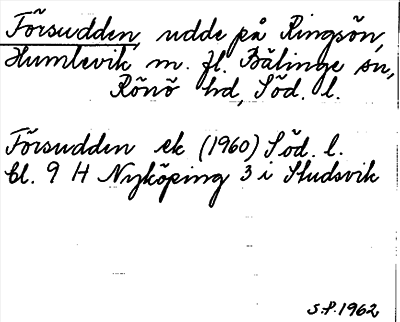 Försudden, udde på Ringsön,
Humlevik m. fl. Bälinge sn,
Rönö hd, Söd. l.
Försudden ek (1960) Söd. l.
bl. 9 H Nyköping 3 i Studsvik
S.P. 1962